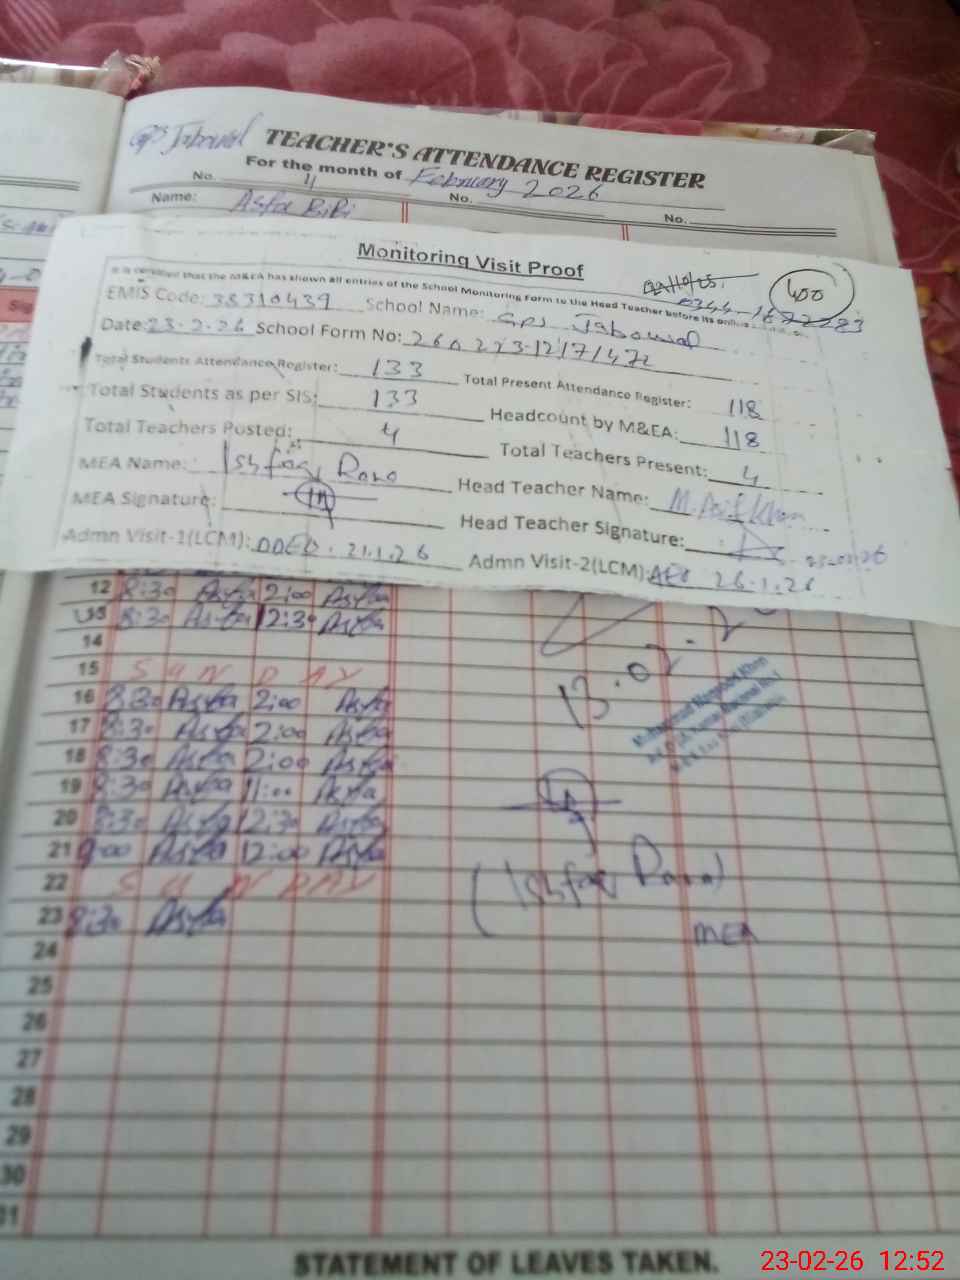 GPS Jabowal TEACHER'S ATTENDANCE REGISTER
For the month of February 2026
No. 11 No. No.
Name: Asfa BiBi
Monitoring Visit Proof
It is certified that the M&EA has shown all entries of the School Monitoring Form to the Head Teacher before its
400
EMIS Code: 38310439 School Name: GPS Jabowal
Date: 23-2-26 School Form No: 260223-1217147
Total Students Attendance Register: 133 Total Present Attendance Register: 118
Total Students as per SIS: 133 Headcount by M&EA: 118
Total Teachers Posted: 4 Total Teachers Present: 4
MEA Name: Ishfaq Rana Head Teacher Name: M. Asif Khan
MEA Signature: Head Teacher Signature:
Admn Visit-1(LCM): DDEO. 21.1.26 Admn Visit-2(LCM): AEO 26.1.26
12 8:30 Asfa 2:00 Asfa
13 8:30 Asfa 12:30 Asfa
14
15 SUNDAY
16 8:30 Asfa 2:00 Asfa
13.02.2
17 8:30 Asfa 2:00 Asfa
18 8:30 Asfa 2:00 Asfa
19 8:30 Asfa 11:00 Asfa
20 8:30 Asfa 12:30 Asfa
21 9:00 Asfa 12:00 Asfa
22 SUNDAY
(Ishfaq Rana)
23 8:30 Asfa
MEA
24
25
26
27
28
29
30
31
STATEMENT OF LEAVES TAKEN.
23-02-26 12:52